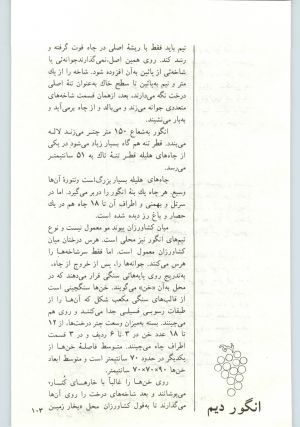 تیم باید فقط با ریشهٔ اصلی در چاه فوت گرفته و
رشد کند. روی همین اصل، نمی‌گذارند جوانه‌ئی یا
شاخه‌ئی از پائین به‌آن افزوده شود. شاخه را از یك
متر و نیم به‌پائین تا سطح خاك به‌عنوان تنهٔ اصلی
درخت نگه می‌دارند، بعد، ازهمان قسمت شاخه‌های
متعددی جوانه می‌زند و می‌بالد و از چاه برمی‌آید و
به‌بار می‌نشیند.
انگور به‌شعاع ۱۵۰ متر چتر می‌زند
می‌بندد. قطر تنه هم گاه بسیار زیاد می‌شود در یکی
از چاه‌های هلیله قطر تنهٔ تاك به ۵۱ سانتیمتر
می‌رسد.
چاه‌های هلیله بسیار بزرگ‌است وتنورهٔ آن‌ها
وسیع. هر چاه یك بنهٔ انگور را دربر می‌گیرد. اما در
سرتل و بهمنی و اطراف آن تا ۱۸ چاه هم در یك
حصار و باغ رز دیده شده است.
میان کشاورزان پیوند مو معمول نیست و نوع
تیم‌های انگور نیز محلی است. هرس درختان میان
کشاورزان معمول است. اما فقط سرشاخه‌ها را
هرس می‌کنند. جوانه‌ها را، پس از خروج از چاه،
به‌تدریج روی پایه‌هائی سنگی قرار می‌دهند که در
محل به‌آن «خن» می‌گویند. خن‌ها سنگچینی است
از قالب‌های سنگی مکعب شکل که آن‌ها را از
طبقات رسوبی فسیلی جدا می‌کنند و روی هم
می‌چینند. بسته به‌میزان وسعت چتر درخت‌ها، از ۱۲
تا ۱۸ عدد خن در ۳ تا ۶ ردیف و در ۳ قسمت
اطراف چاه می‌چینند. متوسط فاصلهٔ خن‌ها از
یکدیگر در حدود ۷۰ سانتیمتر است و متوسط ابعاد
خن‌ها ۹۰×۷۰×۷۰.
روی خن‌ها را غالباً با خارهای کُنار،
می‌پوشانند و بعد شاخه‌های درخت را روی آن‌ها
می‌گذارند تا به‌قول کشاورزان محل «بخار زمین
انگور دیم
۱۰۳